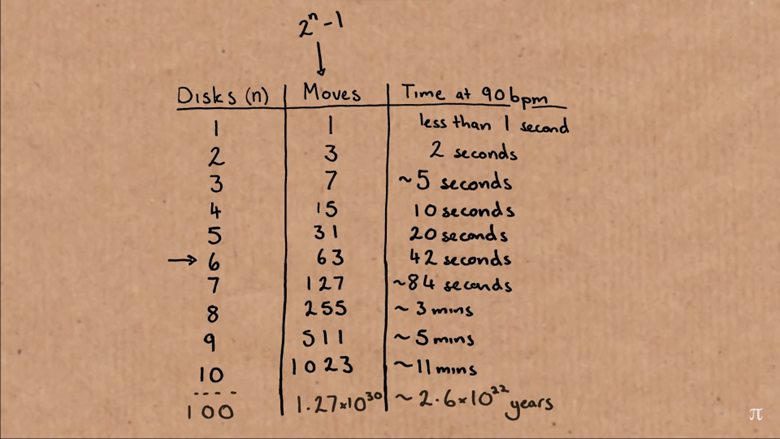 2ⁿ-1
Disks (n) Moves Time at 90bpm
1 1 less than 1 second
2 3 2 seconds
3 7 ~5 seconds
4 15 10 seconds
5 31 20 seconds
→ 6 63 42 seconds
7 127 ~84 seconds
8 255 ~3 mins
9 511 ~5 mins
10 1023 ~11 mins
100 1.27×10³⁰ ~2.6×10²² years
π